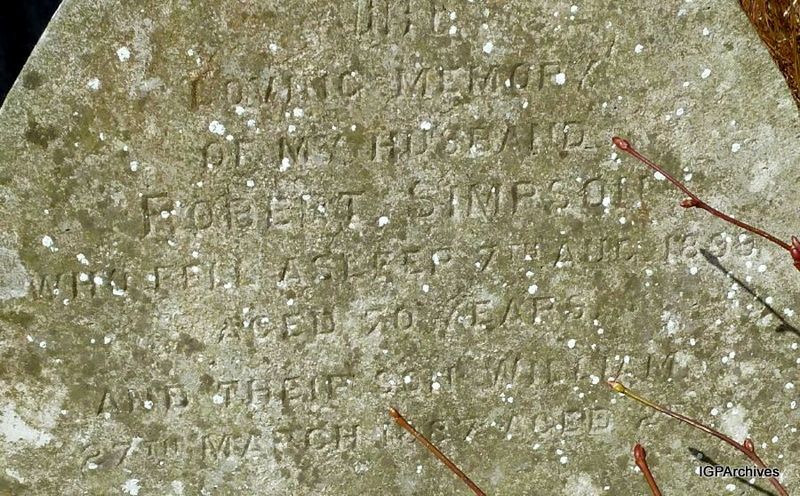 IN
LOVING MEMORY
OF MY HUSBAND
ROBERT SIMPSON
WHO FELL ASLEEP 7TH AUG 1899
AGED 70 YEARS.
AND THEIR SON WILLIAM
27TH MARCH 1887 AGED
IGPArchives